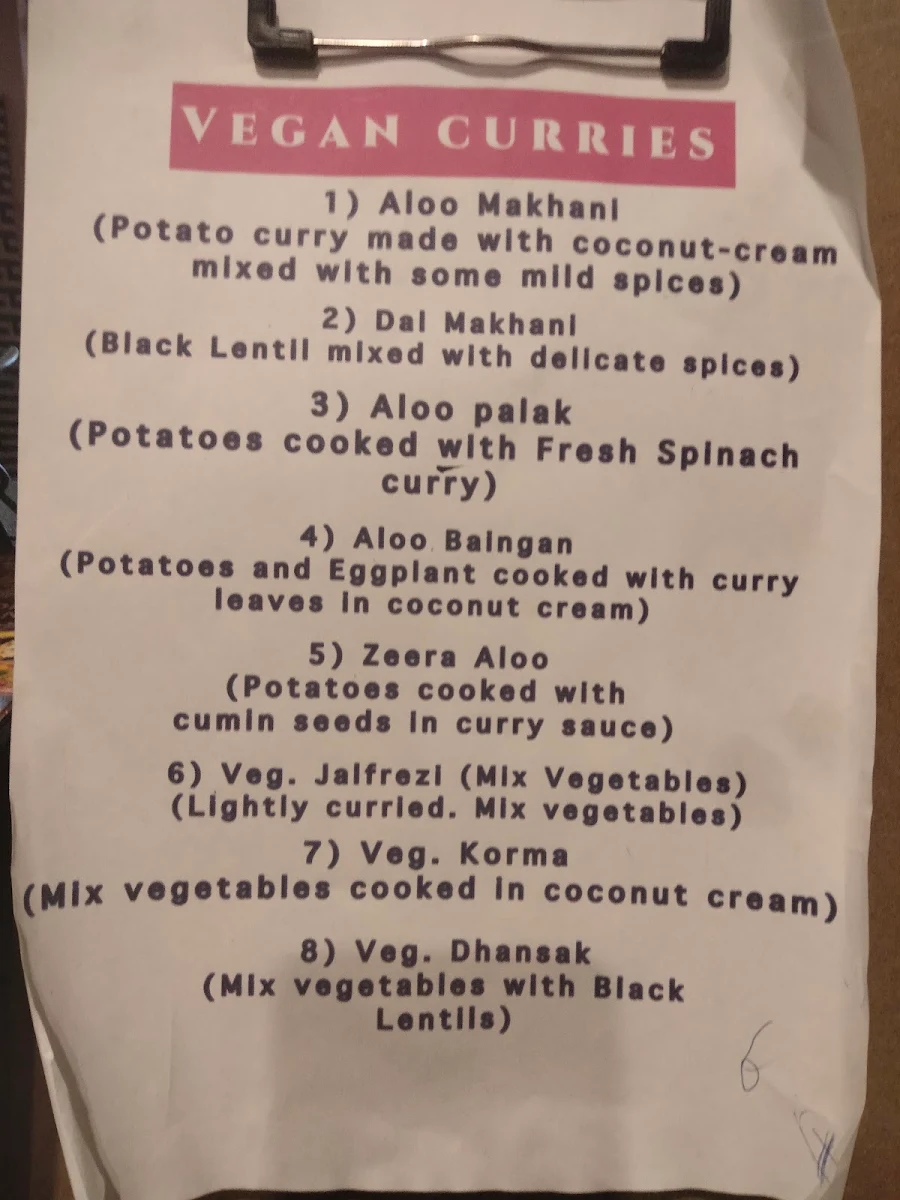 VEGAN CURRIES
1) Aloo Makhani
(Potato curry made with coconut-cream
mixed with some mild spices)
2) Dal Makhani
(Black Lentil mixed with delicate spices)
3) Aloo palak
(Potatoes cooked with Fresh Spinach
curry)
4) Aloo Baingan
(Potatoes and Eggplant cooked with curry
leaves in coconut cream)
5) Zeera Aloo
(Potatoes cooked with
cumin seeds in curry sauce)
6) Veg. Jalfrezi (Mix Vegetables)
(Lightly curried. Mix vegetables)
7) Veg. Korma
(Mix vegetables cooked in coconut cream)
8) Veg. Dhansak
(Mix vegetables with Black
Lentils)
6